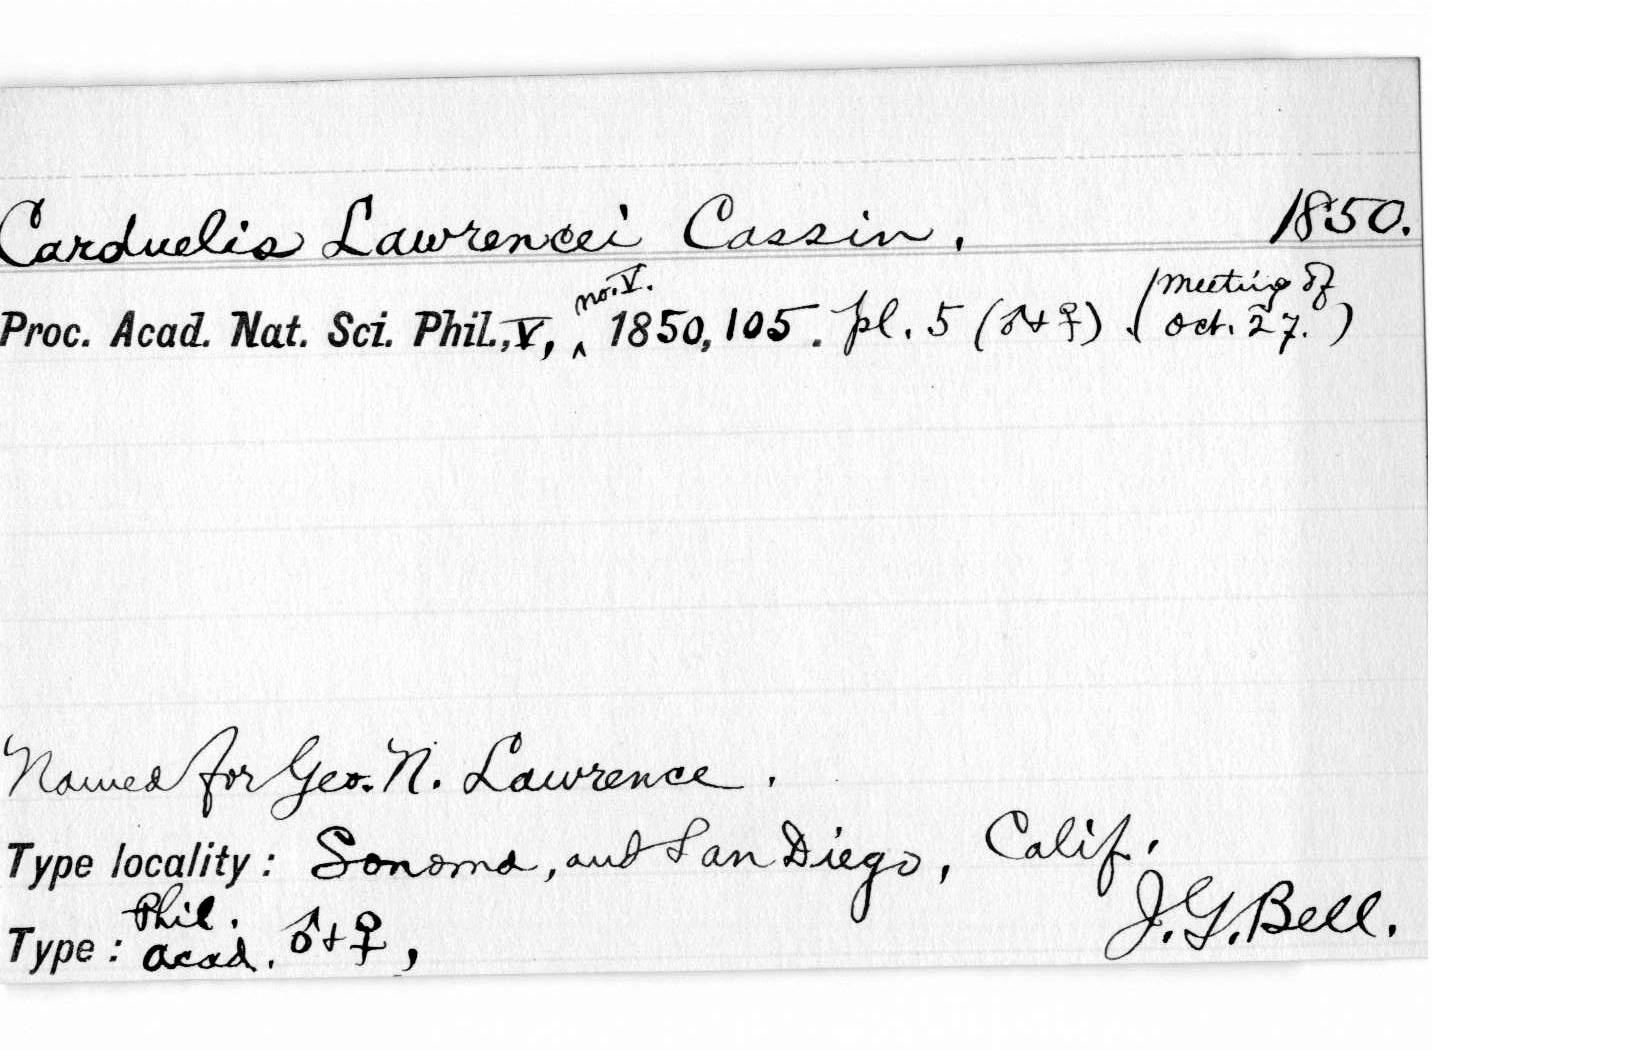 Carduelis Lawrencei Cassin. 1850.
Proc. Acad. Nat. Sci. Phil., V, ‸no. V. 1850, 105. pl. 5 (♂+♀). (Meeting of
Oct. 27.)
Named for Geo. N. Lawrence.
Type locality: Sonoma, and San Diego, Calif.
Type: Phil. Acad. ♂+♀, J. G. Bell.